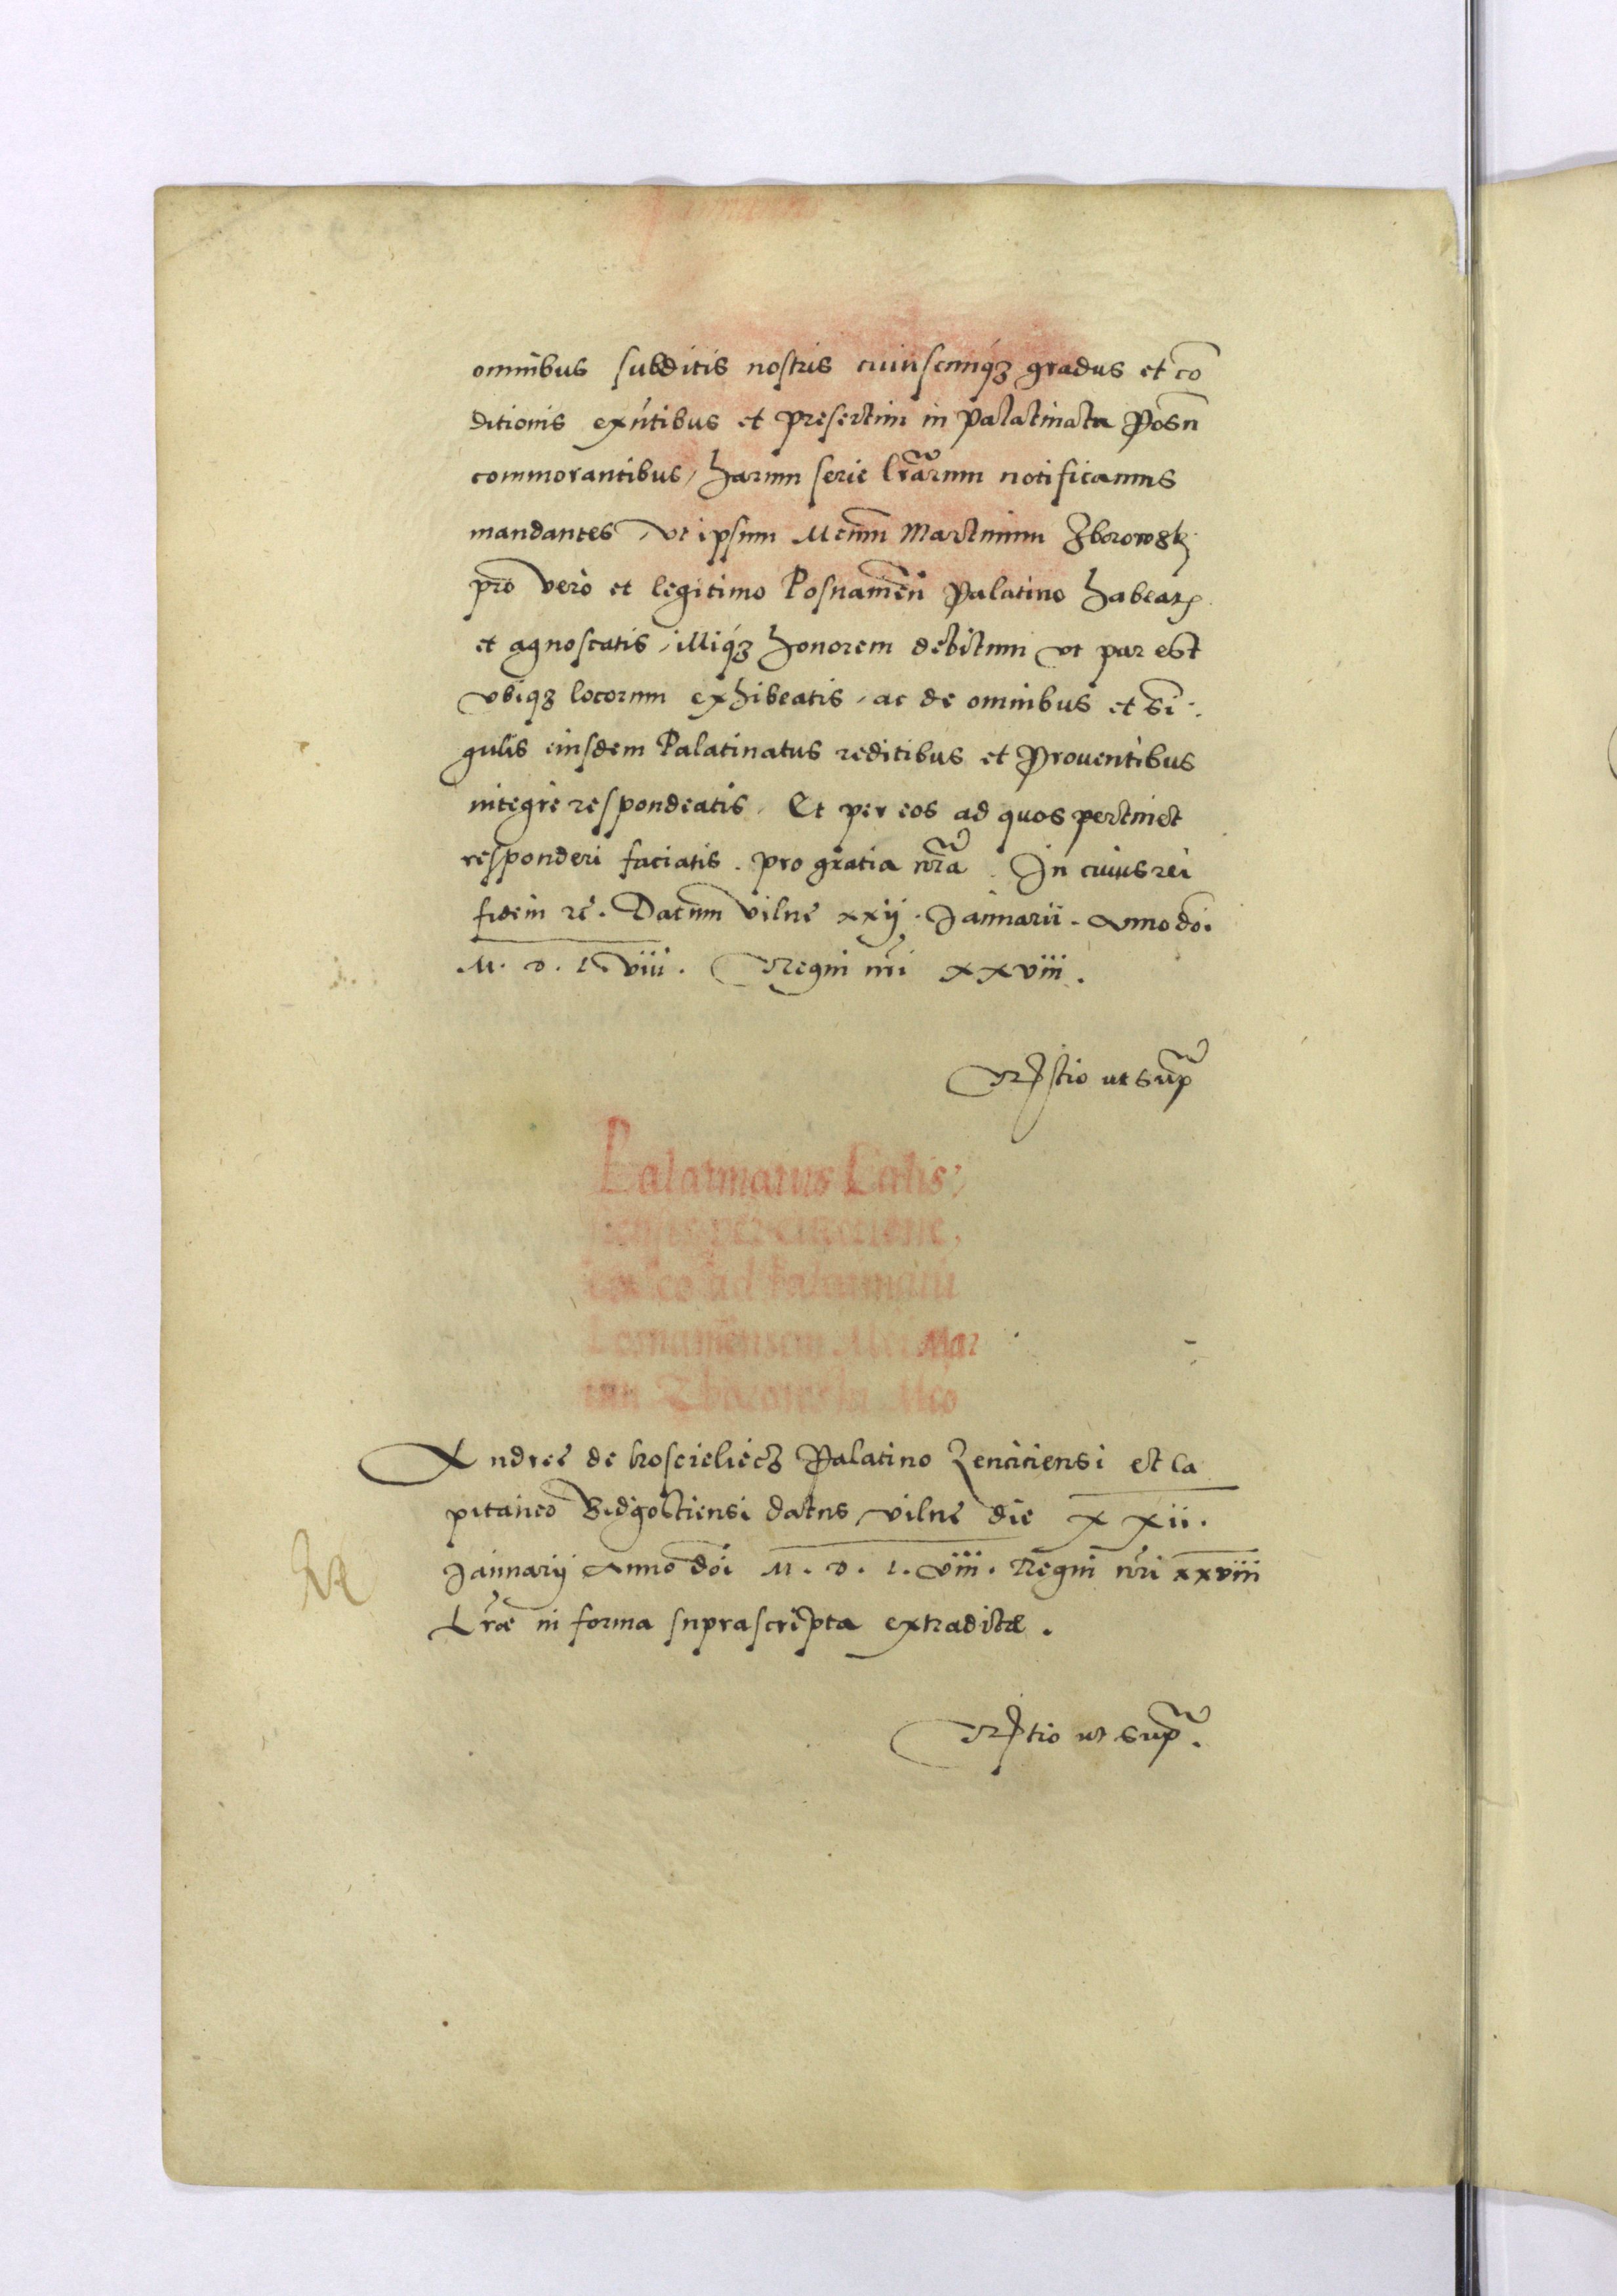 omnibus subditis nostris cuiuscunq₃ gradus et cō
ditionis exñtibus et presertim in palatinatu Posn̄
commorantibus, harum serie lr̄arum notificamus
mandantes, vt ipsum Mcūm Martinum Zborowsk₃
pro vero et legitimo Posnamēn Palatino habeatꝭ
et agnoscatis, illiq₃ honorem debitum vt par est
vbiq₃ locorum exhibeatis, ac de omnibus et sī:
gulis eiusdem Palatinatus reditibus et prouentibus
integre respondeatis. Et per eos ad quos pertinet
responderi faciatis. pro gratia nr̄a. In cuius rei
fidem rē. Datum Vilne xxij. Januarii. Anno doī.
M. D. L. viii. Regni nr̄i xxviii.
Rl̄tio ut sup̄
Palatinatus Calis,
siensis per cessione,
ex eo ad Palatinatū
Posnamēnsem Mci Mar
tini Zborowski Mco
Andree de Koscieliecz Palatino Lenciciensi et Ca
pitaneo Bidgostiensi datus, vilne die xxii.
Januarij Anno doī M. D. L. viii. Regni nr̄i xxviii
Lr̄æ in forma suprascripta extraditæ.
Rl̄tio ut sup̄.